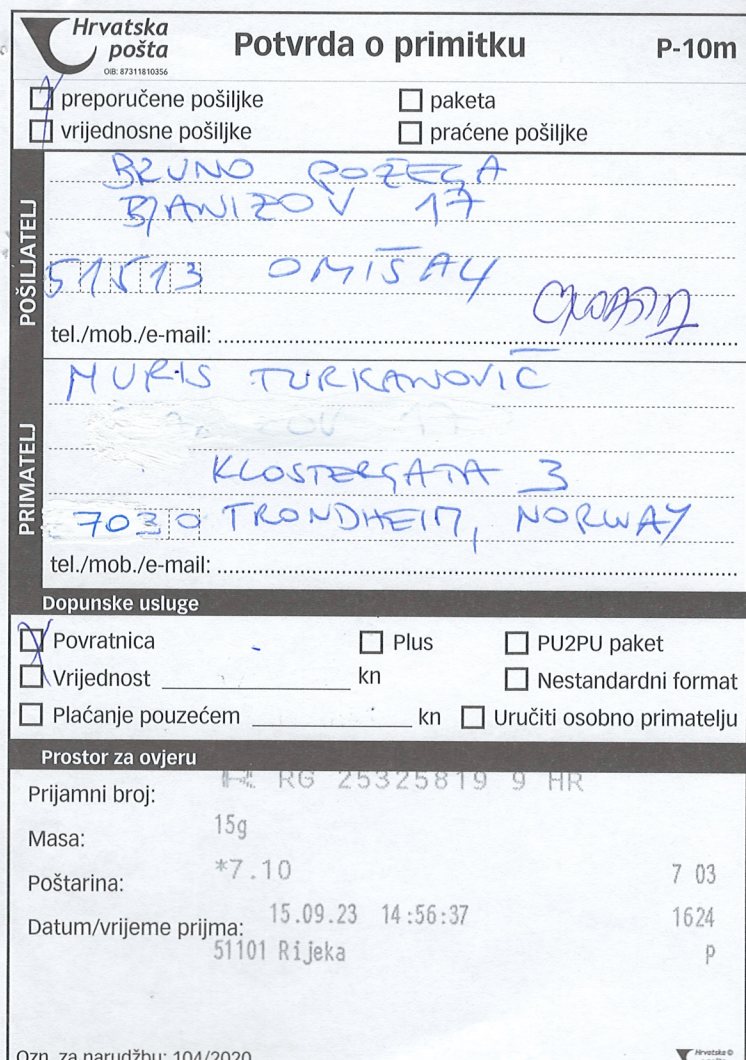 Hrvatska
pošta
OIB: 87311810356
Potvrda o primitku
P-10m
preporučene pošiljke
paketa
vrijednosne pošiljke
praćene pošiljke
POŠILJATELJ
BRUNO POŽEGA
BJANIŽOV 17
51513 OMIŠALJ
tel./mob./e-mail:
PRIMATELJ
NURIS TURKANOVIĆ
OV 17
KLOSTERGATA 3
7030 TRONDHEIM, NORWAY
tel./mob./e-mail:
Dopunske usluge
Povratnica
Plus
PU2PU paket
Vrijednost kn
Nestandardni format
Plaćanje pouzećem kn
Uručiti osobno primatelju
Prostor za ovjeru
Prijamni broj: RG 25325819 9 HR
Masa: 15g
Poštarina: *7.10 7 03
Datum/vrijeme prijma: 15.09.23 14:56:37 1624
51101 Rijeka P
Ozn. za narudžbu: 104/2020
Hrvatska